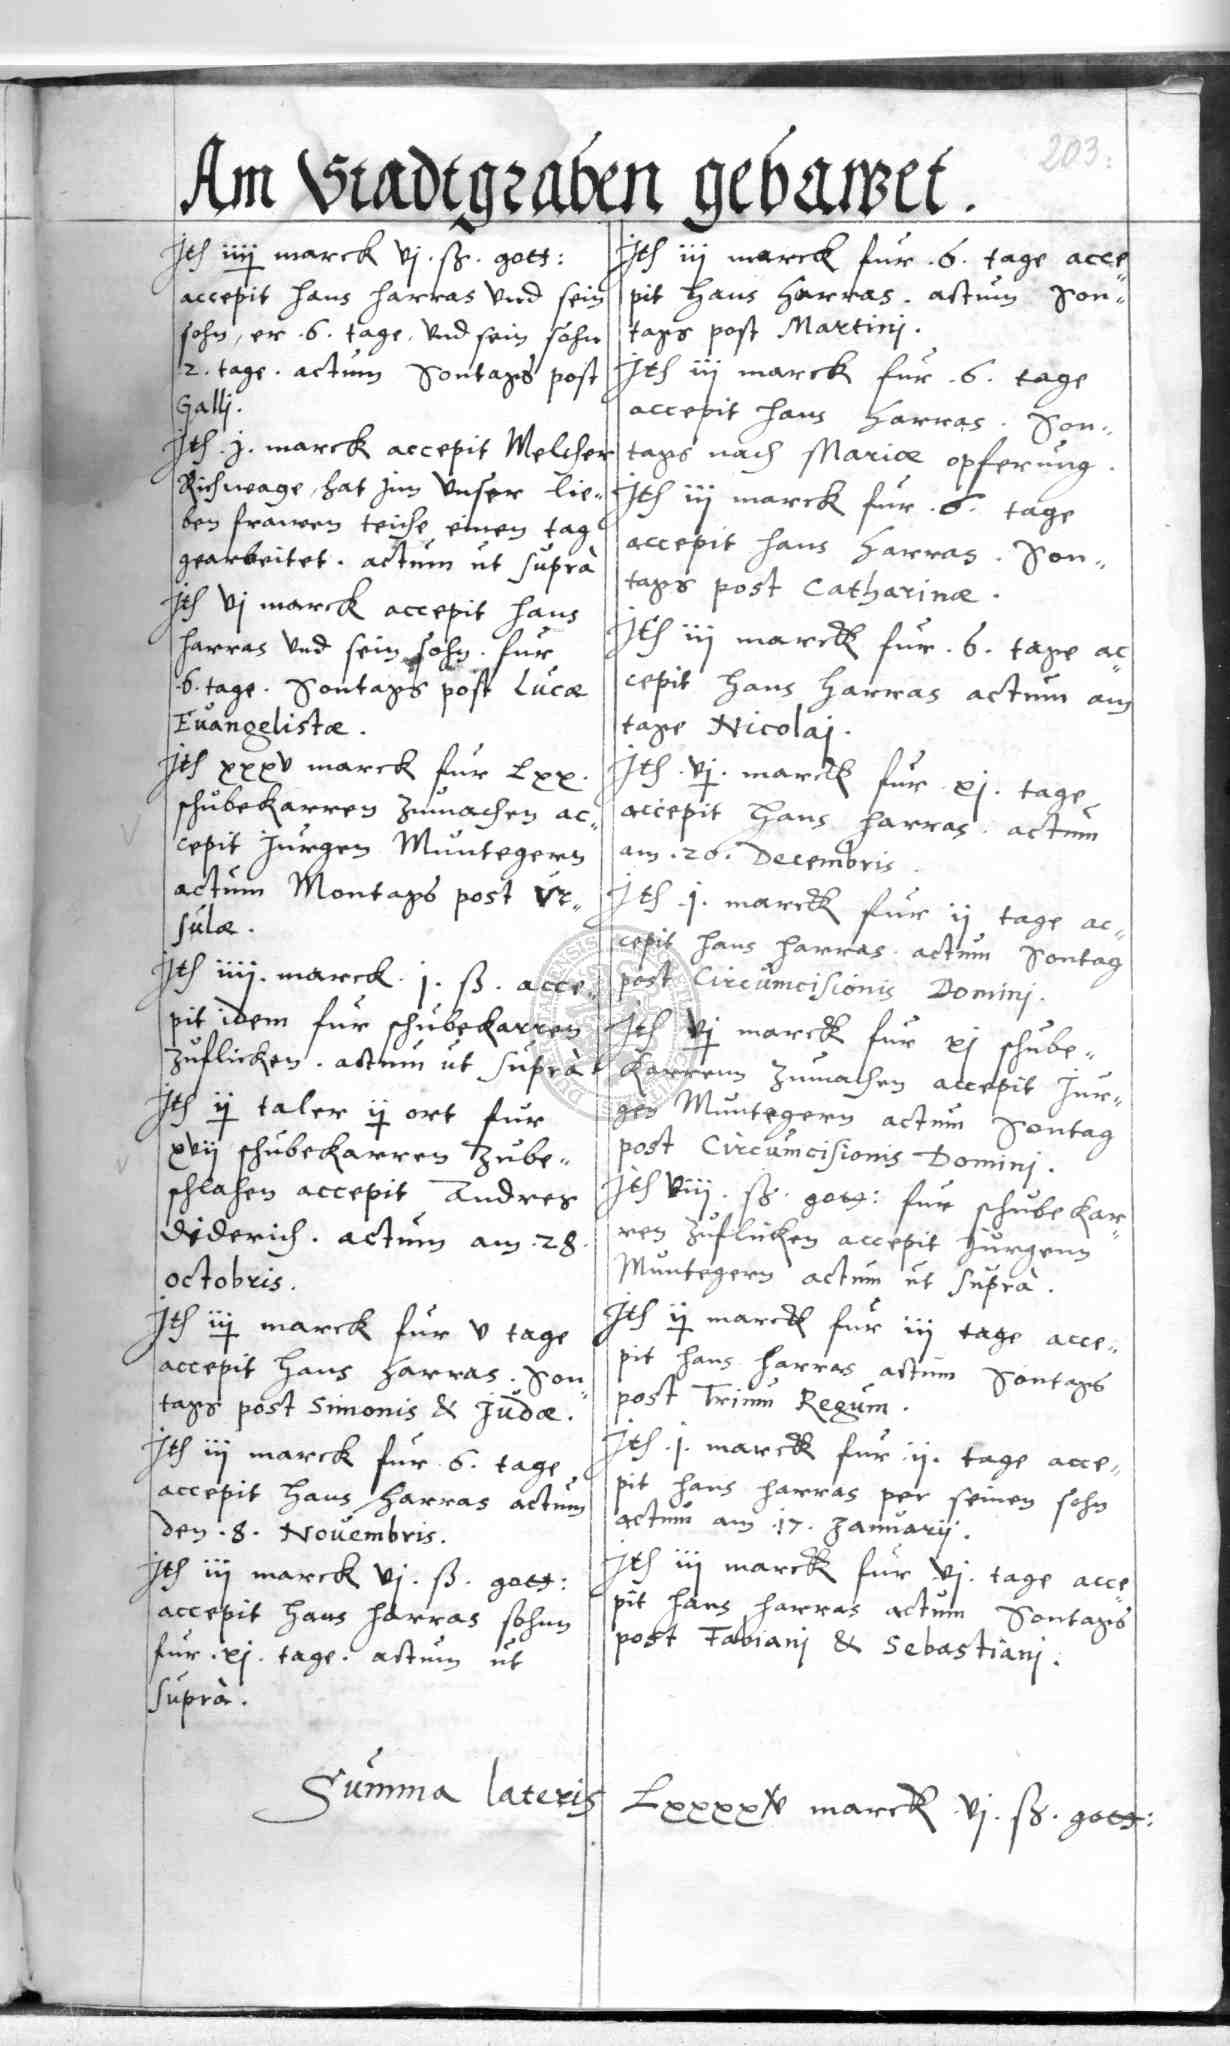 203.
Am Stadtgraben gebawet.
Jth iiij marck vj. ß. gott:
accepit hans harras vnd sein
sohn, er .6. tage, vnd sein sohn
2. tage. actum Sontags post
Galli.
Jth j. marck accepit Melcher
Richwage, hat jnn vnser lie„
ben frawen teiche einen tag
gearbeitet. actum ut suprà
Jth vj marck accepit hans
harras vnd sein sohn. fur
.6. tage. Sontags post Lucæ
Euangelistæ.
Jth xxxv marck fur Lxx.
schubekarren zumachen ac„
cepit Jurgen Muntegern
actum Montags post Vr„
sulæ.
Jth iiij. marck. j. ß. acce„
pit idem fur schubekarren
zuflicken. actum ut suprà
Jth ij taler ij ort fur
xvij schubekarren zube„
schlahen accepit Andres
Diderich. actum am .28.
octobris.
Jth iij marck fur v tage
accepit Hans Harras. Son„
tags post Simonis & Judæ.
Jth iij marck fur 6. tage
accepit Hans Harras actum
den .8. Nouembris.
Jth iij marck vj. ß. gott:
accepit Hans harras sohnn
fur .xj. tage. actum ut
suprà.
Jth iij marck fur .6. tage acce„
pit Hans Harras. actum Son„
tags post Martinj.
Jth iij marck fur .6. tage
accepit hans Harras. Son„
tags nach Mariæ opferung.
Jth iij marck fur .6. tage
accepit hans Harras. Son„
tags post Catharinæ.
Jth iij marck fur .6. tage ac„
cepit Hans Harras actum am
tage Nicolaj.
Jth .vj. marck fur .xj. tage
accepit Hans harras. actum
am .20. Decembris.
Jth .j. marck fur ij tage ac„
cepit hans harras. actum Sontag
post Circumcisionis Dominj.
Jth vj marck fur xj schube„
karrenn zumachen accepit Jur„
gen Muntegern actum Sontag
post Circumcisionis Dominj.
Jth viij. ß. gott: fur schubekar„
ren zuflicken accepit Jurgenn
Muntegern actum ut suprà.
Jth ij marck fur iij tage acce„
pit hans harras actum Sontags
post Trium Regum.
Jth .j. marck fur .ij. tage acce„
pit hans harras per seinen sohn
actum am .17. Januarij.
Jth iij marck fur .vj. tage acce„
pit hans harras actum Sontags
post Fabianj & Sebastianj.
Summa lateris Lxxxxv marck .vj. ß. gott: